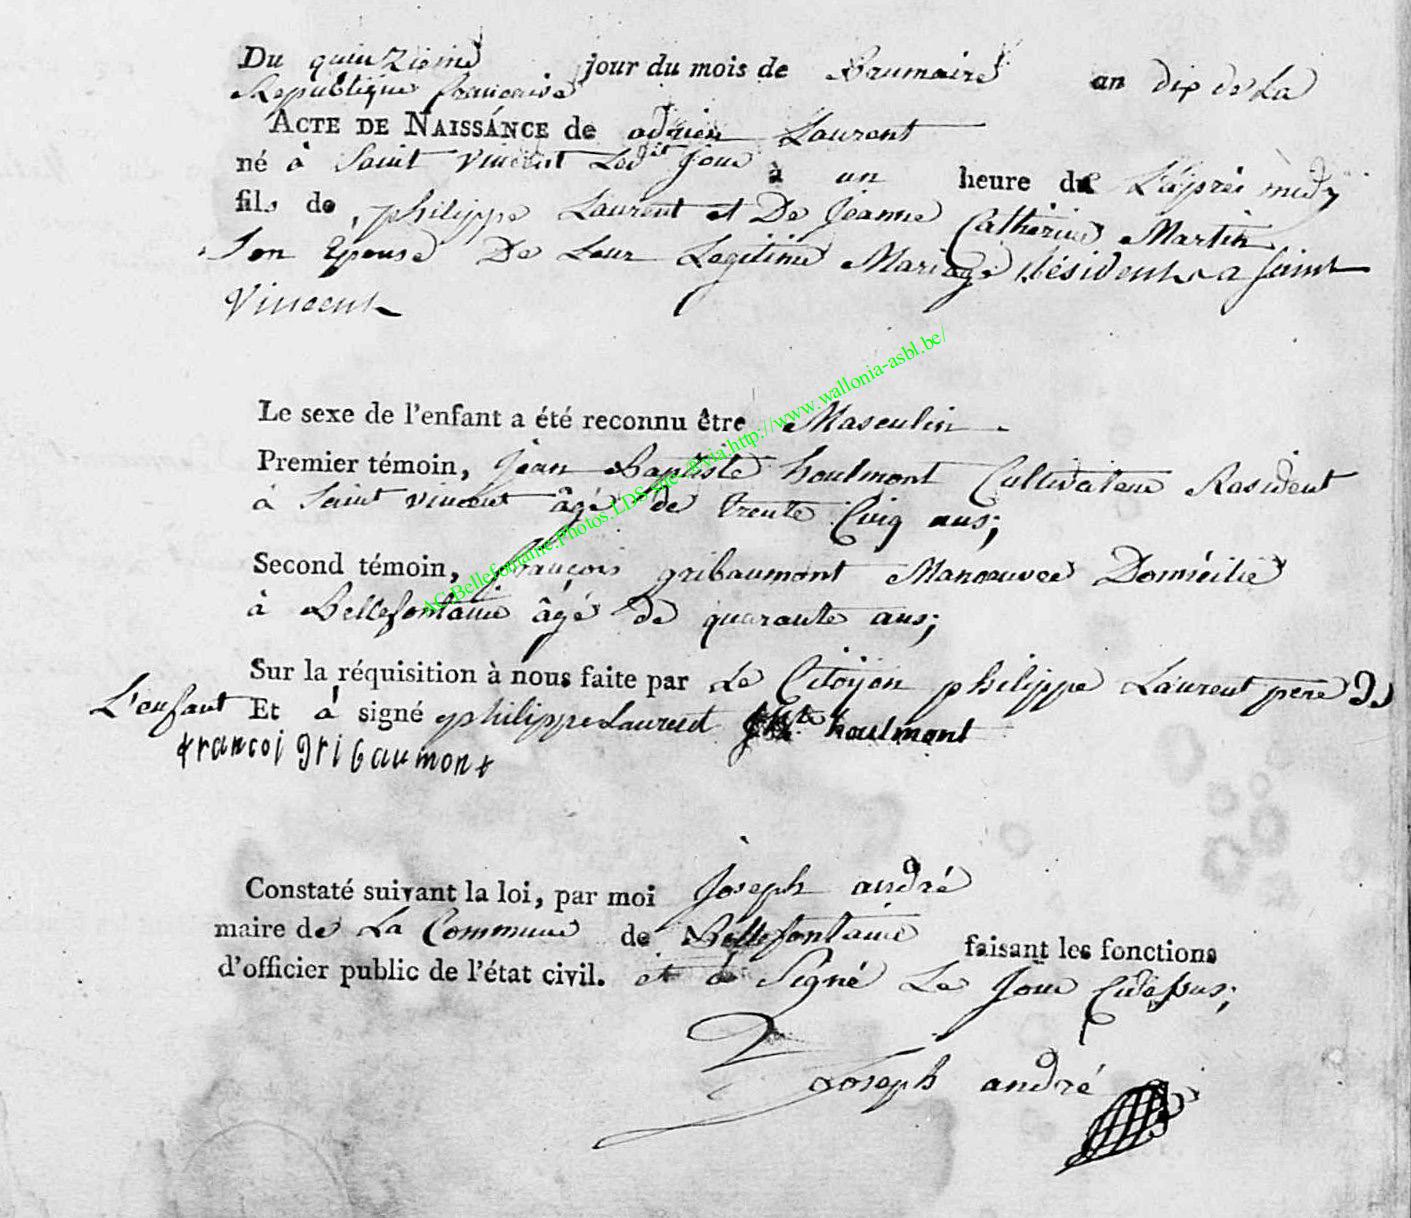 Du quinzieme jour du mois de Brumaire an dix de La
Republique francaise
ACTE DE NAISSANCE de adrien Laurent
né à Saint Vincent Ledit Jour à un heure de L'aprés midy
fils de philippe Laurent et De Jeanne Catherine Martin
Son Epouse De Leur Legitime Mariage Résident a Saint
Vincent
Le sexe de l'enfant a été reconnu être Masculin
Premier témoin, Jean Baptiste houlmont Cultivateur Rasident
à Saint Vincent âgé de trente Cinq ans;
Second témoin, françois gribaumont Manoeuvre Domicilié
à Bellefontaine âgé de quarante ans;
Sur la réquisition à nous faite par Le Citoyen philippe Laurent pere De
L'enfant Et à signé philippe Laurent houlmont
francoi gribaumont
Constaté suivant la loi, par moi Joseph andré
maire de La Commune de Bellefontaine faisant les fonctions
d'officier public de l'état civil. et à Signé Le Jour Cidessus;
Joseph andré
AC.Bellefontaine.Photos.LDS via.http://www.wallonia-asbl.be/